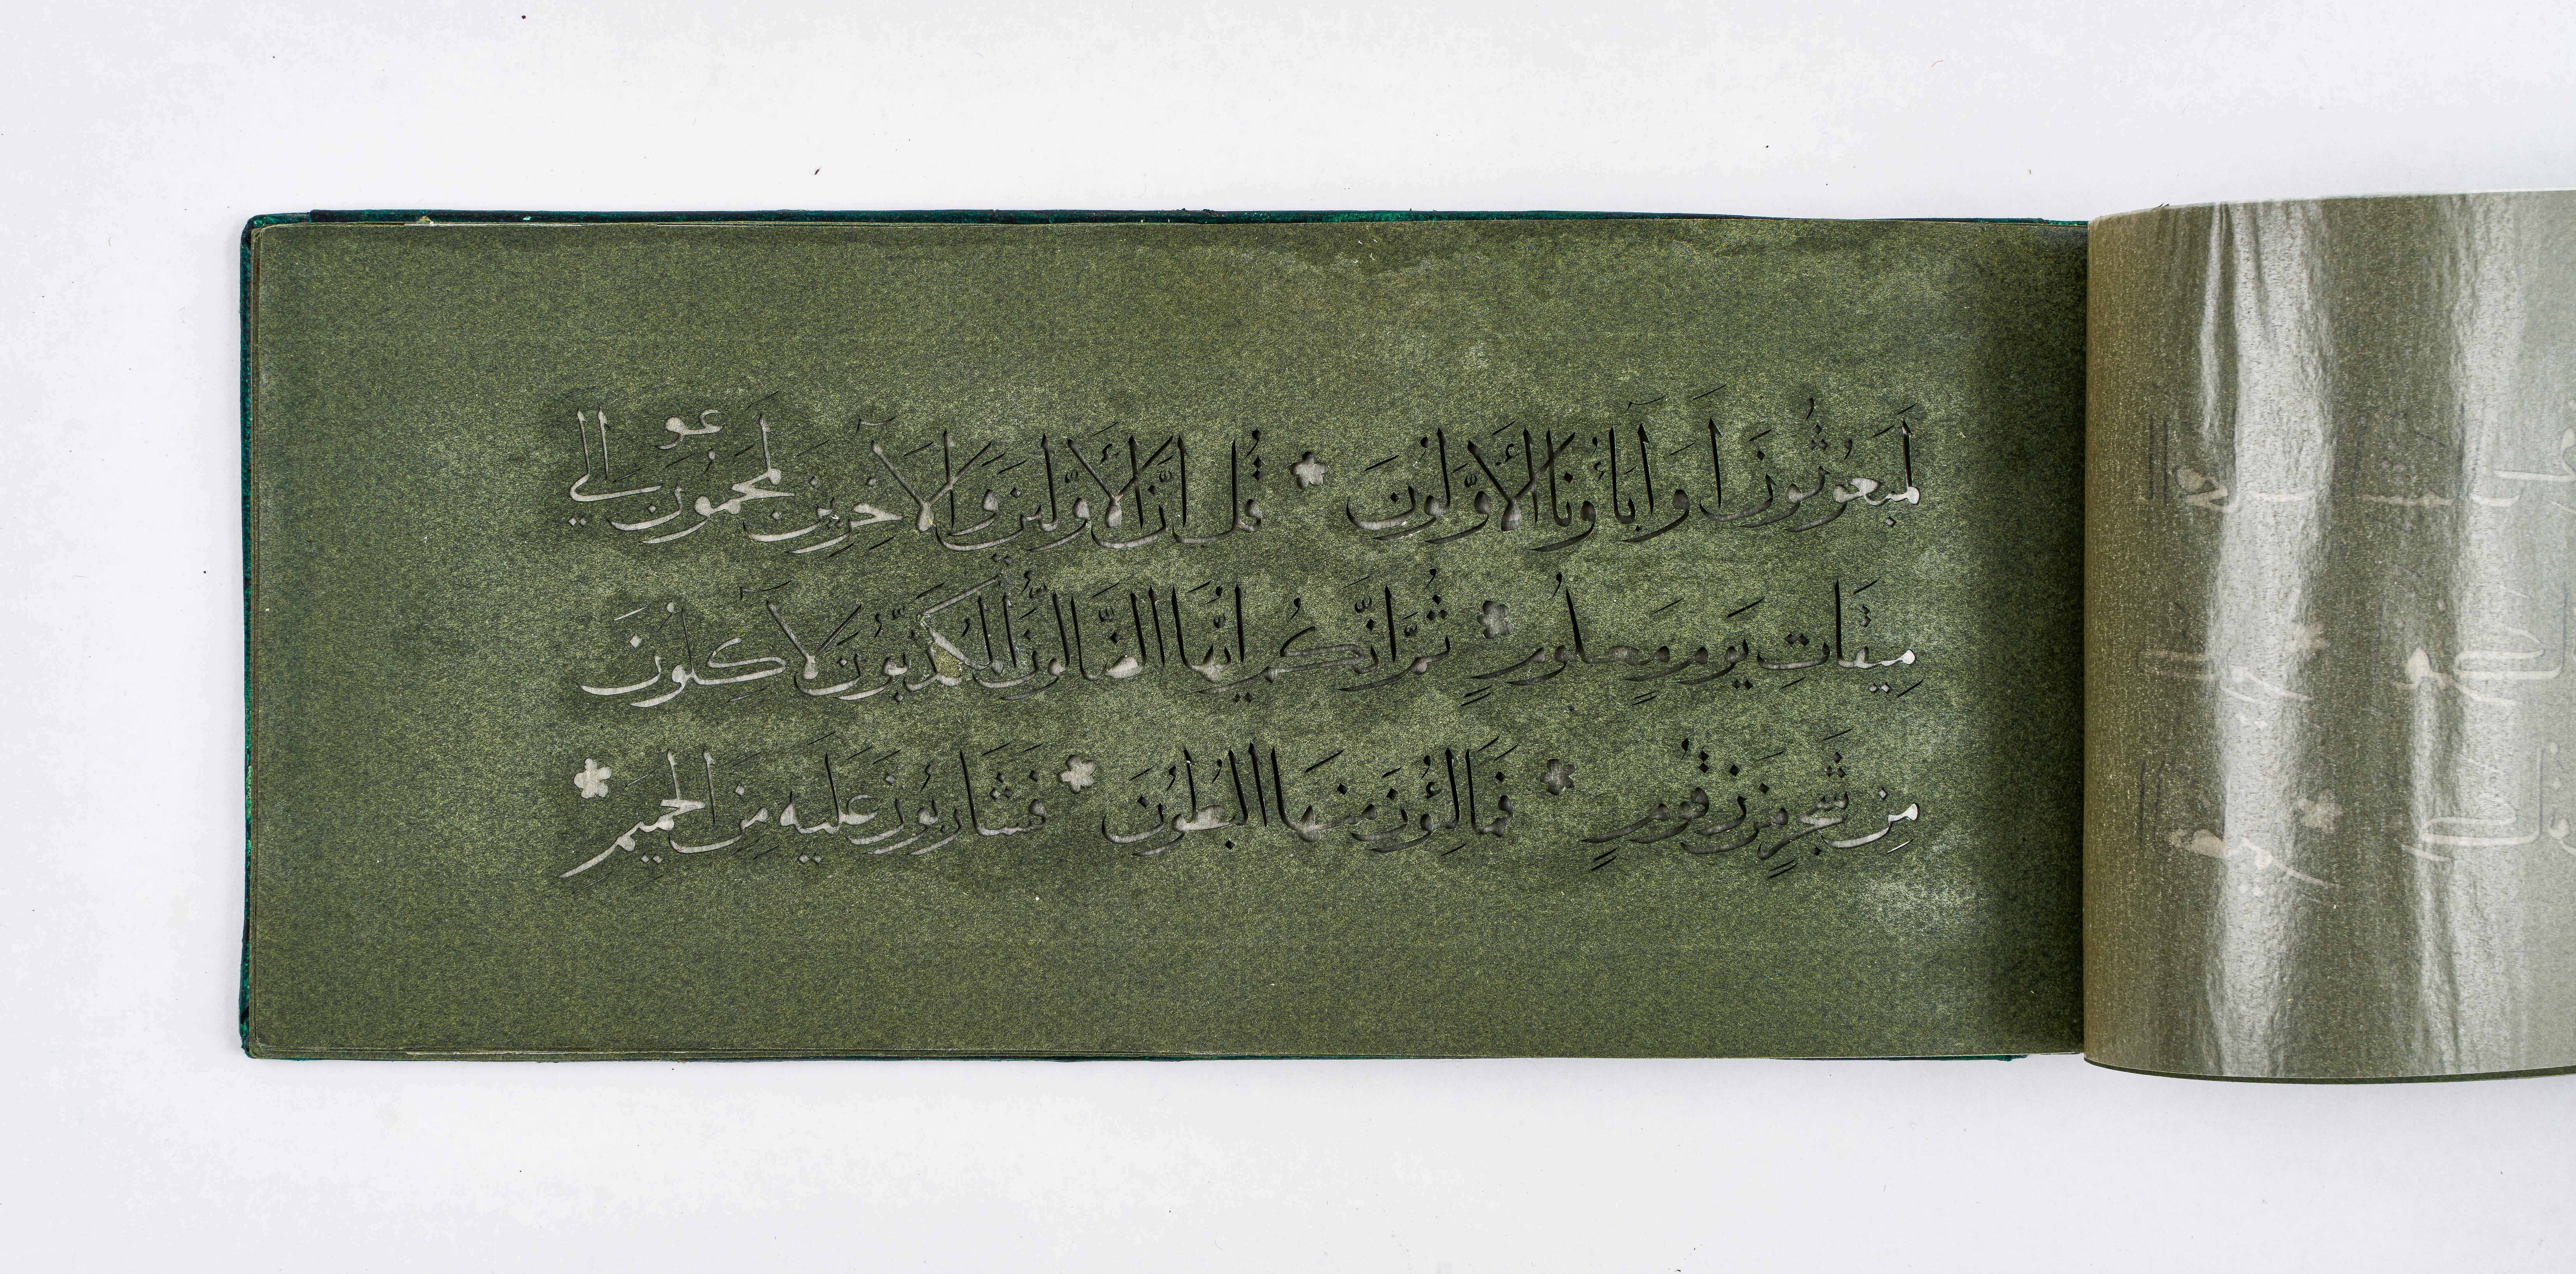 لَمَبعُوثُونَ اَوَ اٰبَاؤُنَا الْاَوَّلُونَ قُل اِنَّ الْاَوَّلينَ وَ الْاٰخِرِينَ لَمَجمُوعُونَ اِلٰي
مِيقَاتِ يَومٍ مَعلُومٍ ثُمَّ اِنَّكُم اَيُّهَا الضَّالُّونَ المُكَذِّبُونَ لَاٰكِلُونَ
مِن شَجَرٍ مِن زَقُّومٍ فَمَالِؤُنَ مِنهَا البُطُونَ فَشَارِبُونَ عَلَيهِ مِنَ الحَمِيمِ